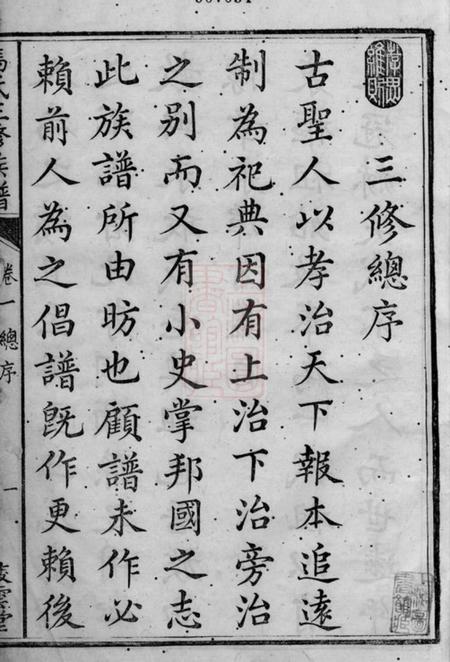 三修總序
古聖人以孝治天下報本追遠
制為祀典因有上治下治旁治
之别而又有小史掌邦國之志
此族譜所由昉也顧譜未作必
賴前人為之倡譜既作更賴後
氏三修族譜
卷一 總序
一
凌雲堂